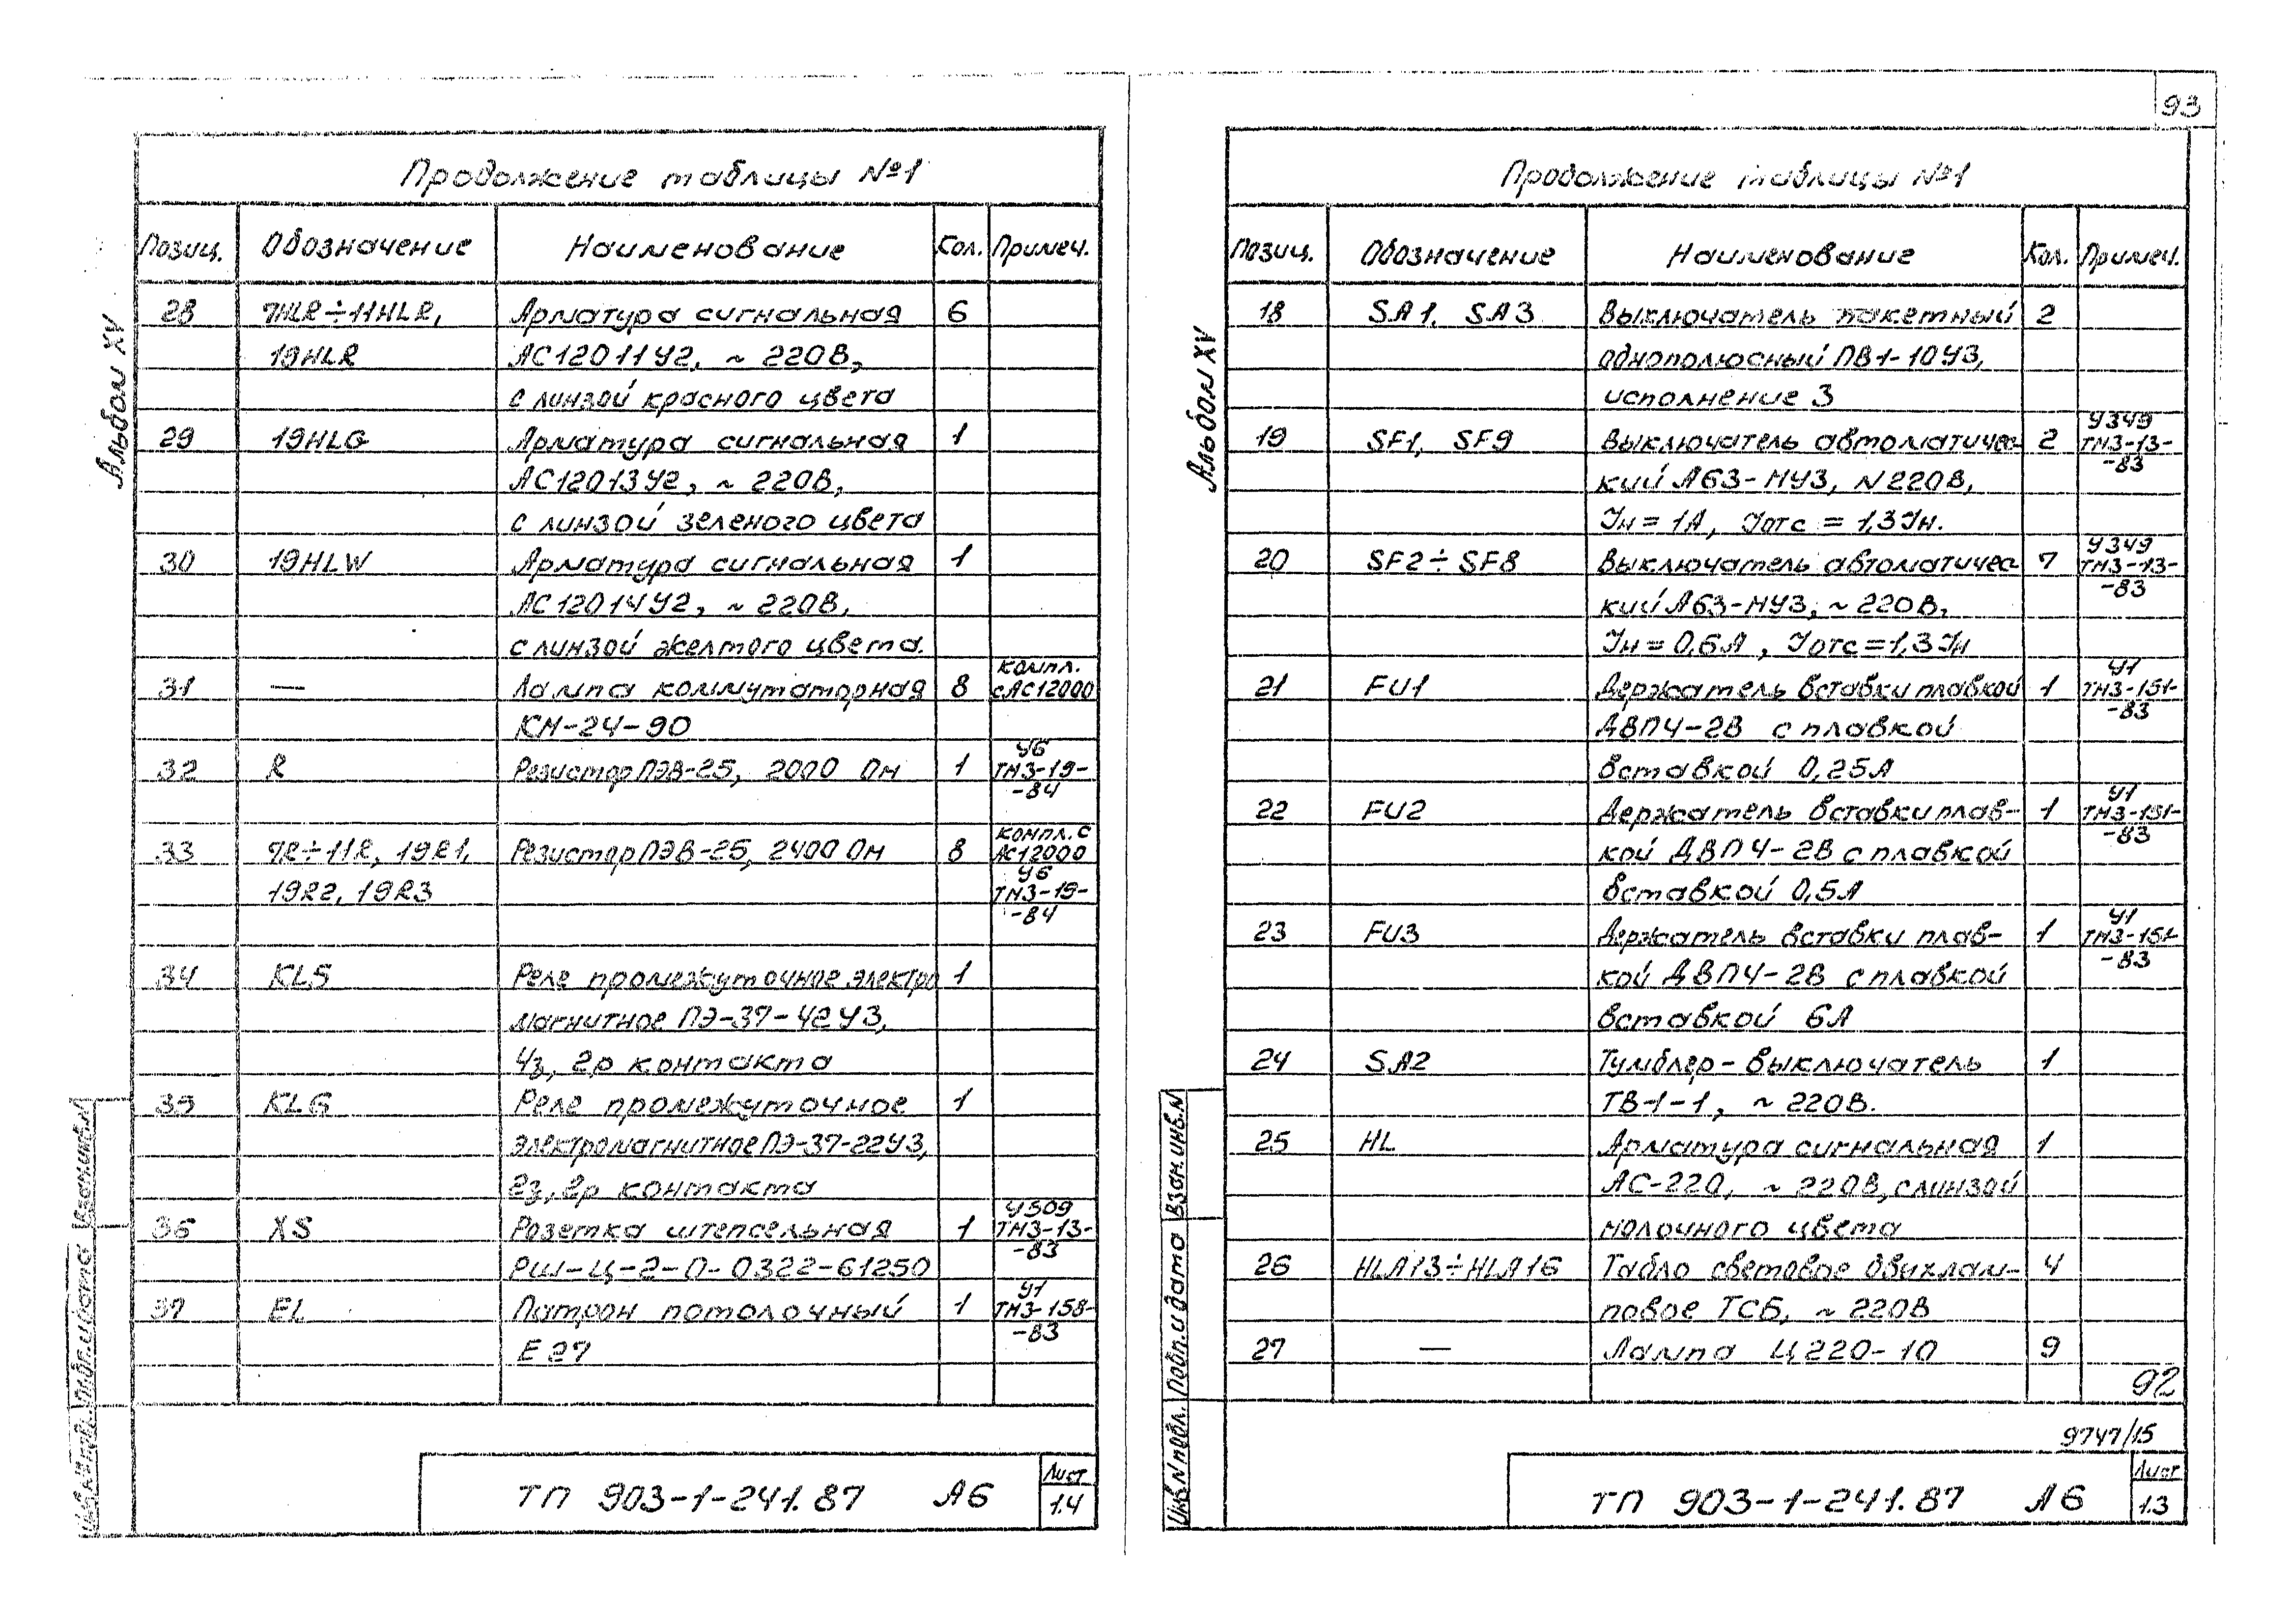 93
Альбом XV
Продолжение таблицы №1
Позиц. Обозначение Наименование Кол. Примеч.
28 7HLR÷11HLR, Арматура сигнальная 6
19HLR АС12011У2, ~ 220В,
с линзой красного цвета
29 19HLG Арматура сигнальная 1
АС12013У2, ~ 220В,
с линзой зеленого цвета
30 19HLW Арматура сигнальная 1
АС12014У2, ~ 220В,
с линзой желтого цвета.
31 — Лампа коммутаторная 8 компл. с АС12000
КМ-24-90
32 R Резистор ПЭВ-25, 2000 Ом 1 У6 ТМ3-19-84
33 7R÷11R, 19R1, Резистор ПЭВ-25, 2400 Ом 8 компл. с АС12000
19R2, 19R3 У6 ТМ3-19-84
34 KL5 Реле промежуточное электро 1
магнитное ПЭ-37-42У3,
4з, 2р контакта
35 KL6 Реле промежуточное 1
электромагнитное ПЭ-37-22У3,
2з, 2р контакта
36 XS Розетка штепсельная 1 У509 ТМ3-13-83
РШ-Ц-2-0-0322-61250
37 EL Патрон потолочный 1 У1 ТМ3-158-83
Е27
ТП 903-1-241.87 А6
Лист
1.4
Альбом XV
Продолжение таблицы №1
Позиц. Обозначение Наименование Кол. Примеч.
18 SA1, SA3 Выключатель пакетный 2
однополюсный ПВ1-10У3,
исполнение 3
19 SF1, SF9 Выключатель автоматичес- 2 У349 ТМ3-13-83
кий А63-МУ3, N 220В,
Iн = 1А, Iотс = 1,3 Iн.
20 SF2÷SF8 Выключатель автоматичес- 7 У349 ТМ3-13-83
кий А63-МУ3, ~ 220В,
Iн = 0,6А, Iотс = 1,3 Iн
21 FU1 Держатель вставки плавкой 1 У1 ТМ3-151-83
ДВП4-2В с плавкой
вставкой 0,25А
22 FU2 Держатель вставки плав- 1 У1 ТМ3-151-83
кой ДВП4-2В с плавкой
вставкой 0,5А
23 FU3 Держатель вставки плав- 1 У1 ТМ3-151-83
кой ДВП4-2В с плавкой
вставкой 6А
24 SA2 Тумблер-выключатель 1
ТВ-1-1, ~ 220В.
25 HL Арматура сигнальная 1
АС-220, ~ 220В, с линзой
молочного цвета
26 HLA13÷HLA16 Табло световое двухлам- 4
повое ТСБ, ~ 220В
27 — Лампа Ц220-10 9
92
9747/15
ТП 903-1-241.87 А6
Лист
1.3
Взам.инв.N
Подп. и дата
Инв.N подл.